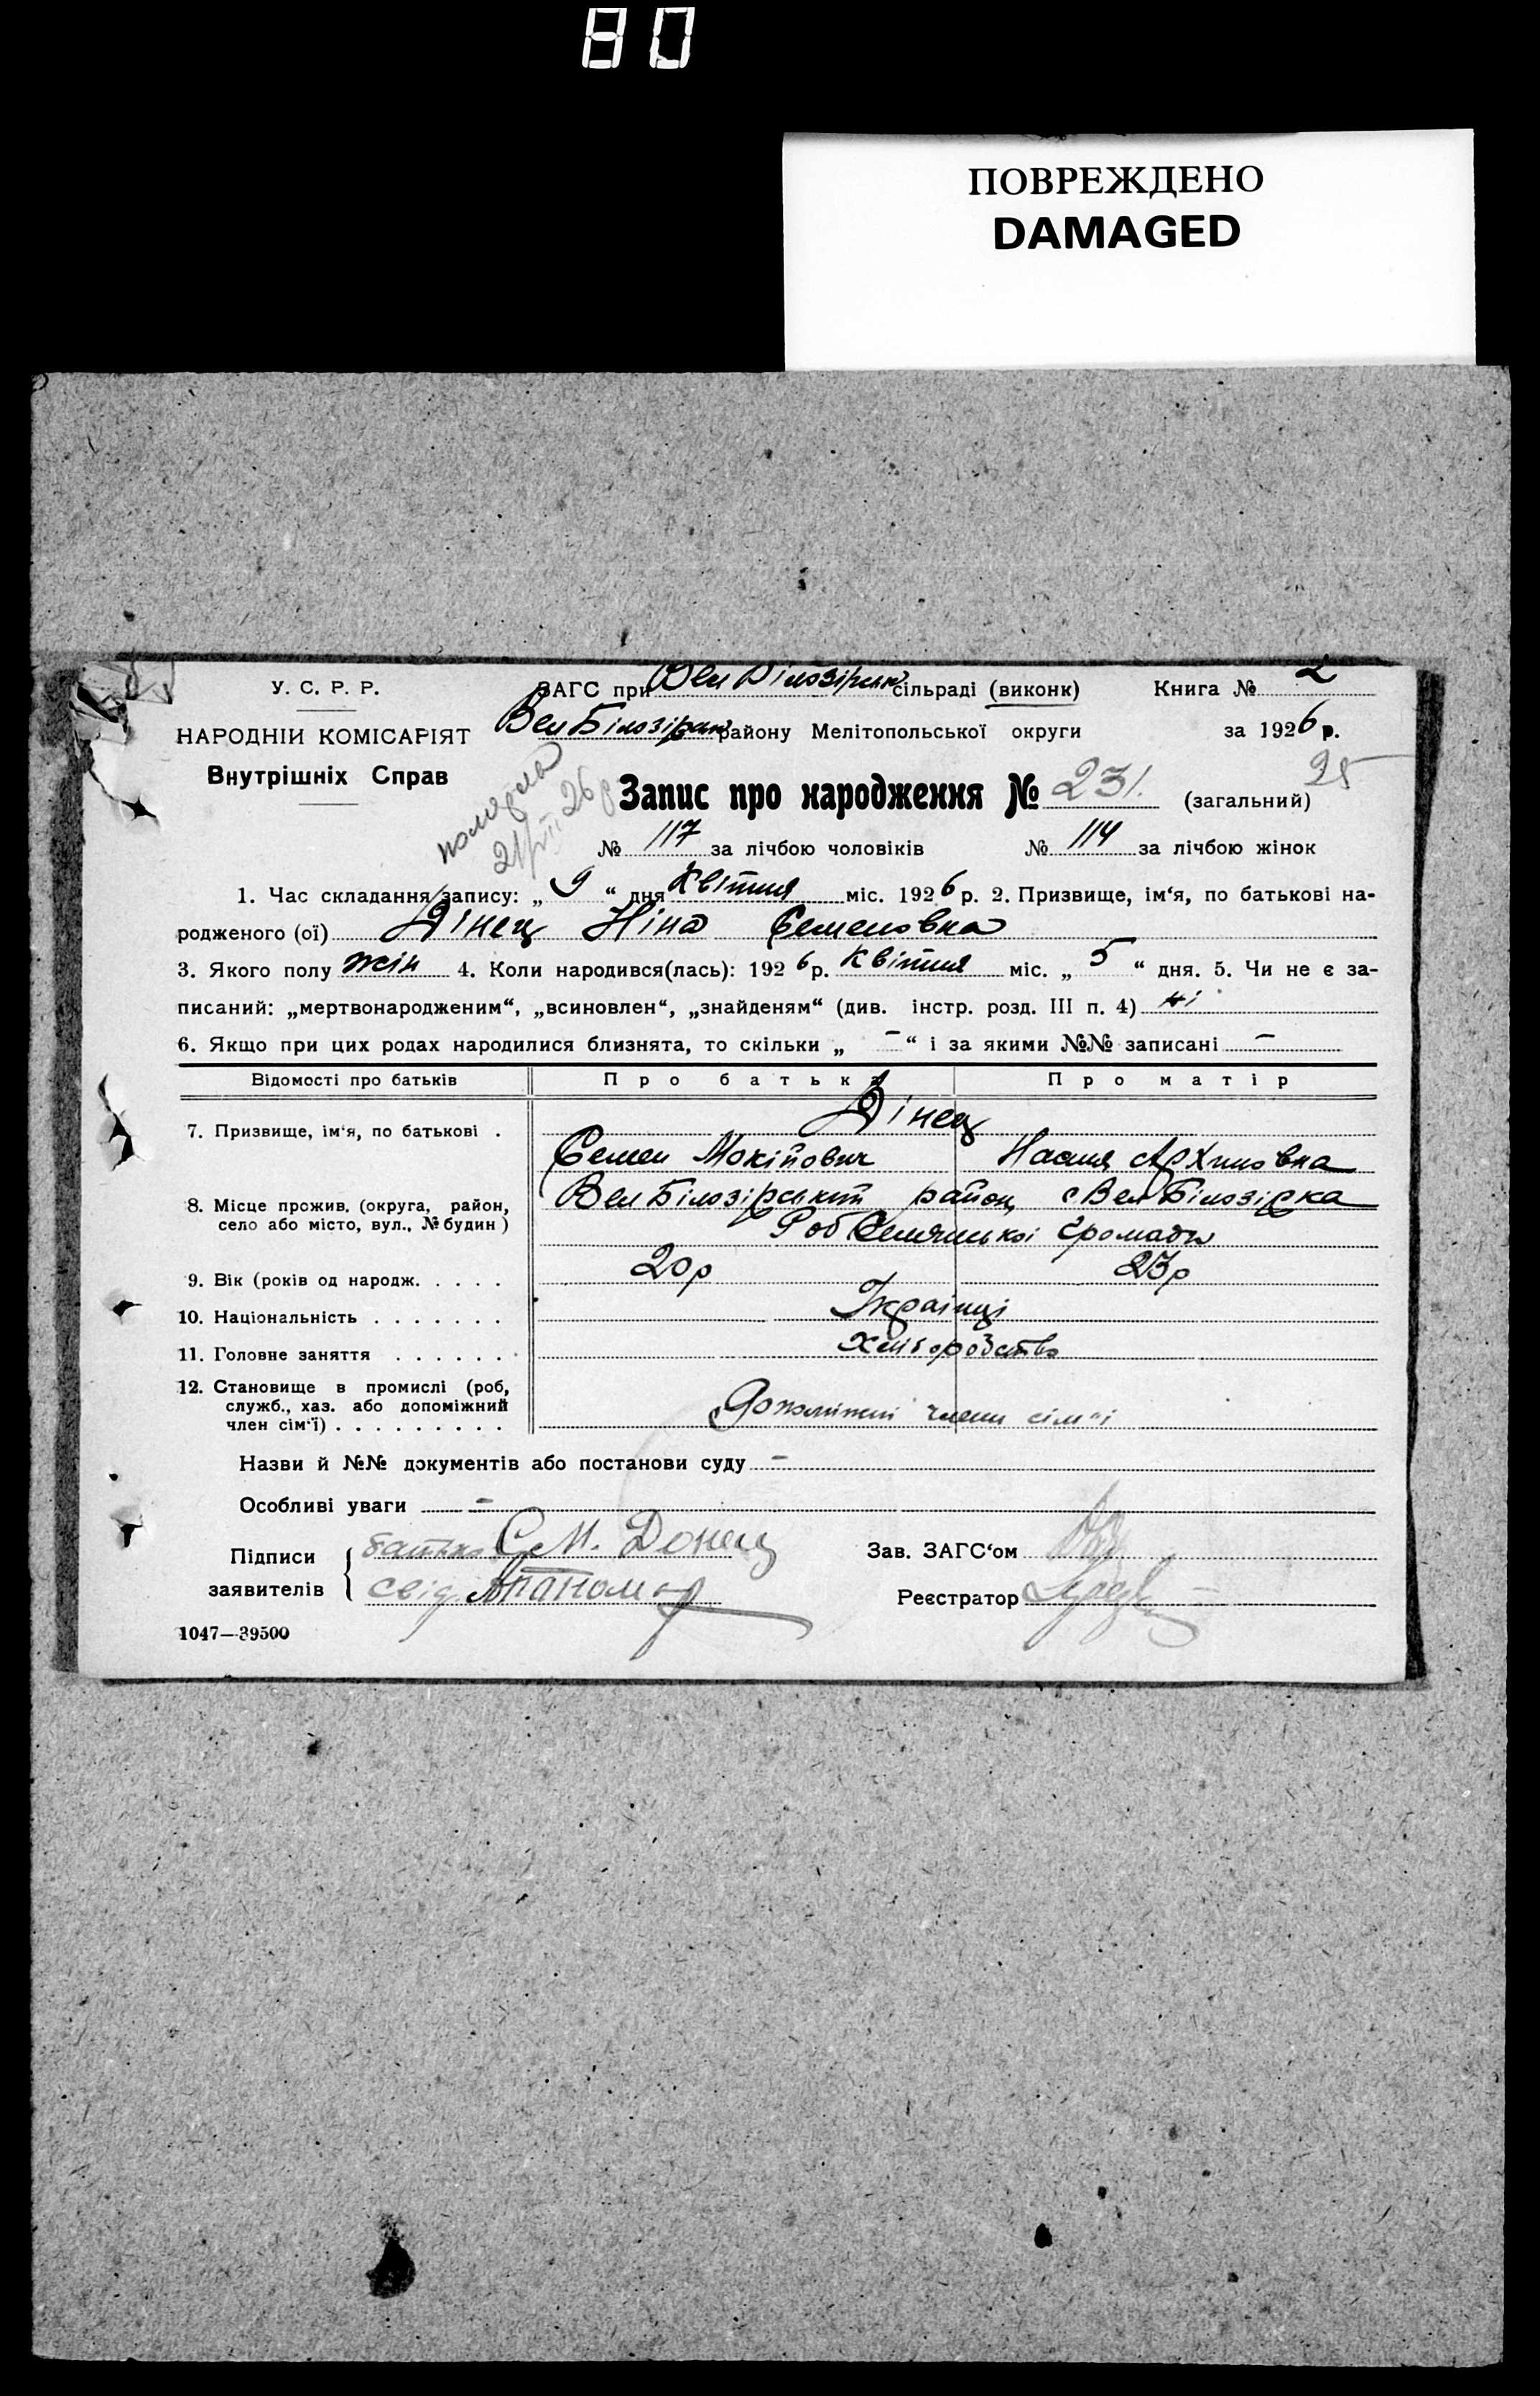 80
ПОВРЕЖДЕНО
DAMAGED
У. С. Р. Р.
ЗАГС при Вел Білозірськ сільраді (виконк)
Книга № 2
НАРОДНІЙ КОМІСАРІЯТ
Вел Білозірськ району Мелітопольської округи
за 1926 р.
Внутрішніх Справ
померла
21/VII 26 р
Запис про народження № 231. (загальний)
25
№ 117 за лічбою чоловіків № 114 за лічбою жінок
1. Час складання запису: „ 9 “ дня Квітня міс. 1926 р. 2. Призвище, ім‘я, по батькові на-
родженого (ої) Дінец Ніна Семеновна
3. Якого полу жін 4. Коли народився(лась): 1926 р. Квітня міс. „ 5 “ дня. 5. Чи не є за-
писаний: „мертвонародженим“, „всиновлен“, „знайденям“ (див. інстр. розд. III п. 4) ні
6. Якщо при цих родах народилися близнята, то скільки „ – “ і за якими №№ записані –
Відомості про батьків Про батька Про матір
7. Призвище, ім‘я, по батькові . Дінец
Семен Мокійович Настя Архиповна
8. Місце прожив. (округа, район,
село або місто, вул., № будин)
Вел Білозірський район с Вел Білозірка
громади
9. Вік (років од народж. . . . . 20р 23р
10. Національність . . . . . . . Українці
11. Головне заняття . . . . . . Хліборобство
12. Становище в промислі (роб,
служб., хаз. або допоміжний
член сім‘ї) . . . . . . . . . Допоміжні члени сім"ї
Назви й №№ документів або постанови суду –
Особливі уваги –
Підписи
заявителів
батько С. М. Донец
свід. Апаномар
Зав. ЗАГС‘ом
Реєстратор
1047—39500